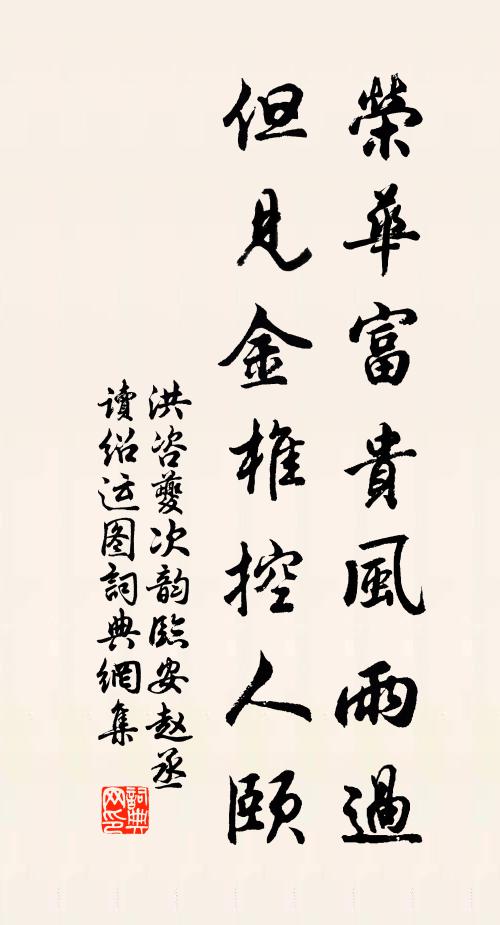 榮華富貴風雨過
但見金椎控人頤
洪咨夔次韵臨安赵丞
讀绍运图詞典網集
詞典网印